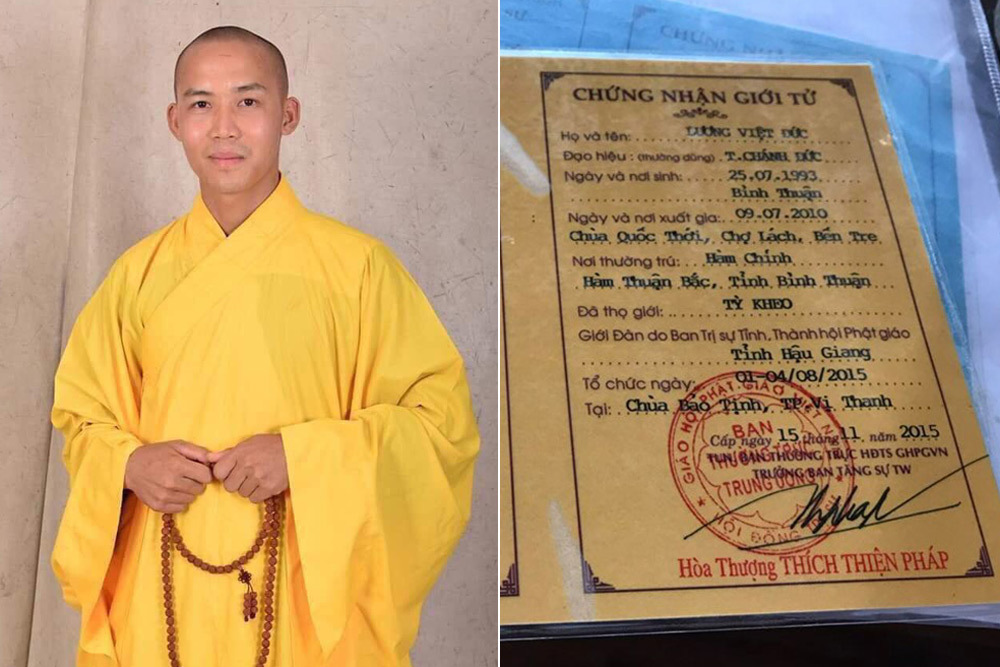 SƯ
CHỨNG NHẬN
CHỨNG NHẬN GIỚI TỬ
Họ và tên: LƯƠNG VIỆT ĐỨC
Đạo hiệu : (thường dùng) T.CHÁNH ĐỨC
Ngày và nơi sinh: 25.07.1993
Bình Thuận
Ngày và nơi xuất gia: 09.07.2010
Chùa Quốc Thới, Chợ Lách, Bến Tre
Nơi thường trú: Hàm Chính
Hàm Thuận Bắc, Tỉnh Bình Thuận
Đã thọ giới: TỲ KHEO
Giới Đàn do Ban Trị sự Tỉnh, Thành hội Phật giáo
Tỉnh Hậu Giang
Tổ chức ngày: 01-04/08/2015
Tại: Chùa Bảo Tịnh, TP.Vị Thanh
Cấp ngày 15 tháng 11 năm 2015
TUN. BAN THƯỜNG TRỰC HĐTS GHPGVN
TRƯỞNG BAN TĂNG SỰ TW
GIÁO HỘI PHẬT GIÁO VIỆT NAM
BAN
THƯỜNG TRỰC
TRUNG ƯƠNG
HỘI ĐỒNG
Hòa Thượng THÍCH THIỆN PHÁP